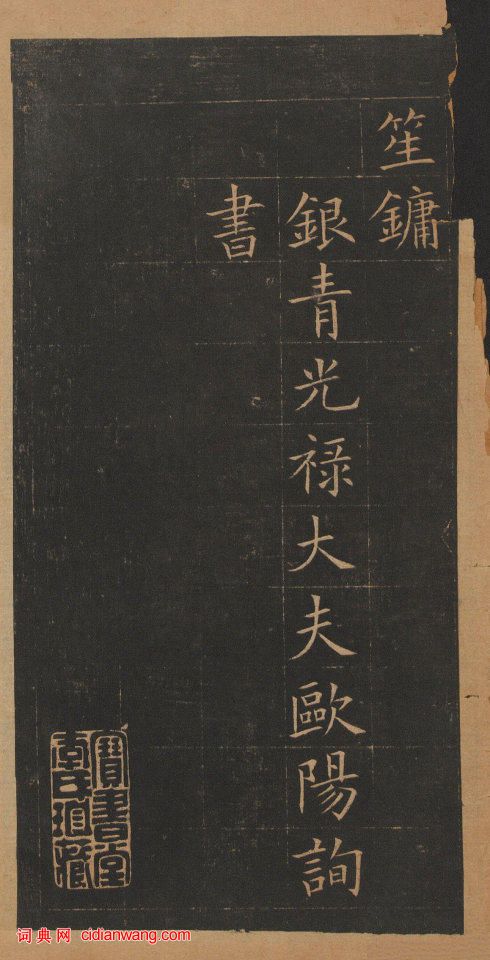 笙鏞
銀青光祿大夫歐陽詢
書
寶書堂
词典网 cidianwang.com